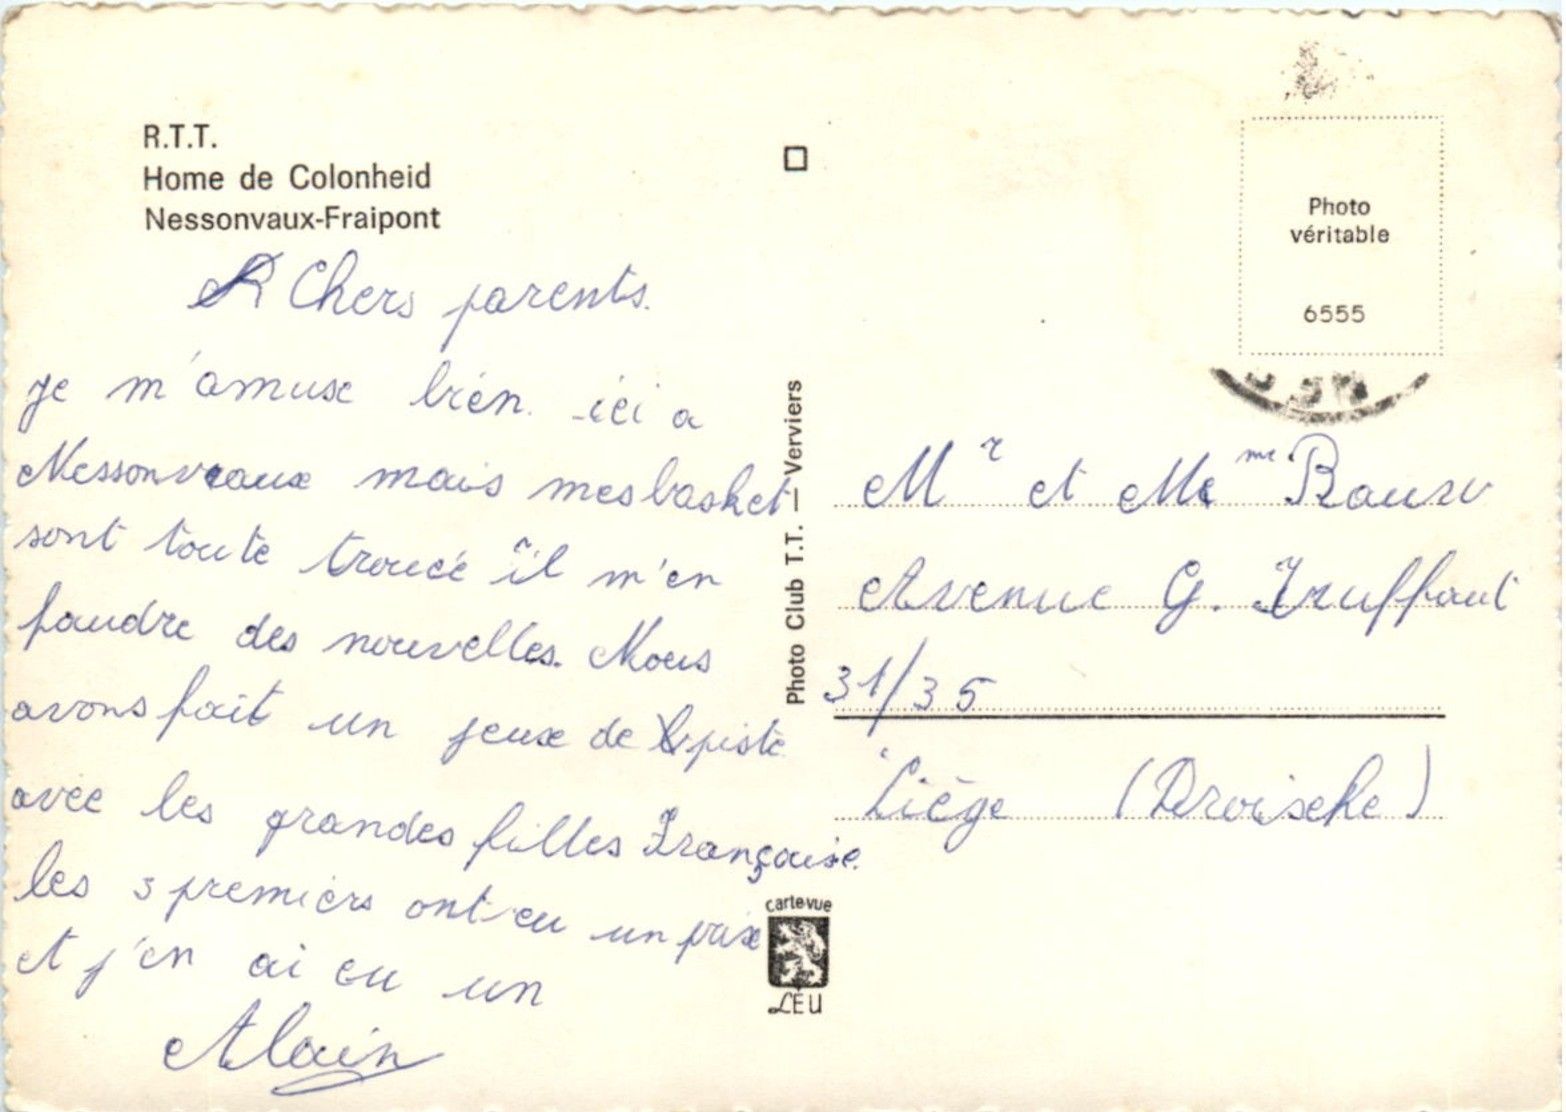 R.T.T.
Home de Colonheid
Nessonvaux-Fraipont
Chers parents.
je m'amuse bien ici a
Nessonveaux mais mes basket
sont toute troueé il m'en
faudre des nouvelles. Nous
avons fait un jeux de piste
avec les grandes filles Française.
les 3 premiers ont eu un prix
et j'en ai eu un
Alain
Photo Club T.T. — Verviers
carte-vue
LEU
Photo
véritable
6555
Mr et Mme
Avenue G. Truffaut
31/35
Liège (Droixhe)